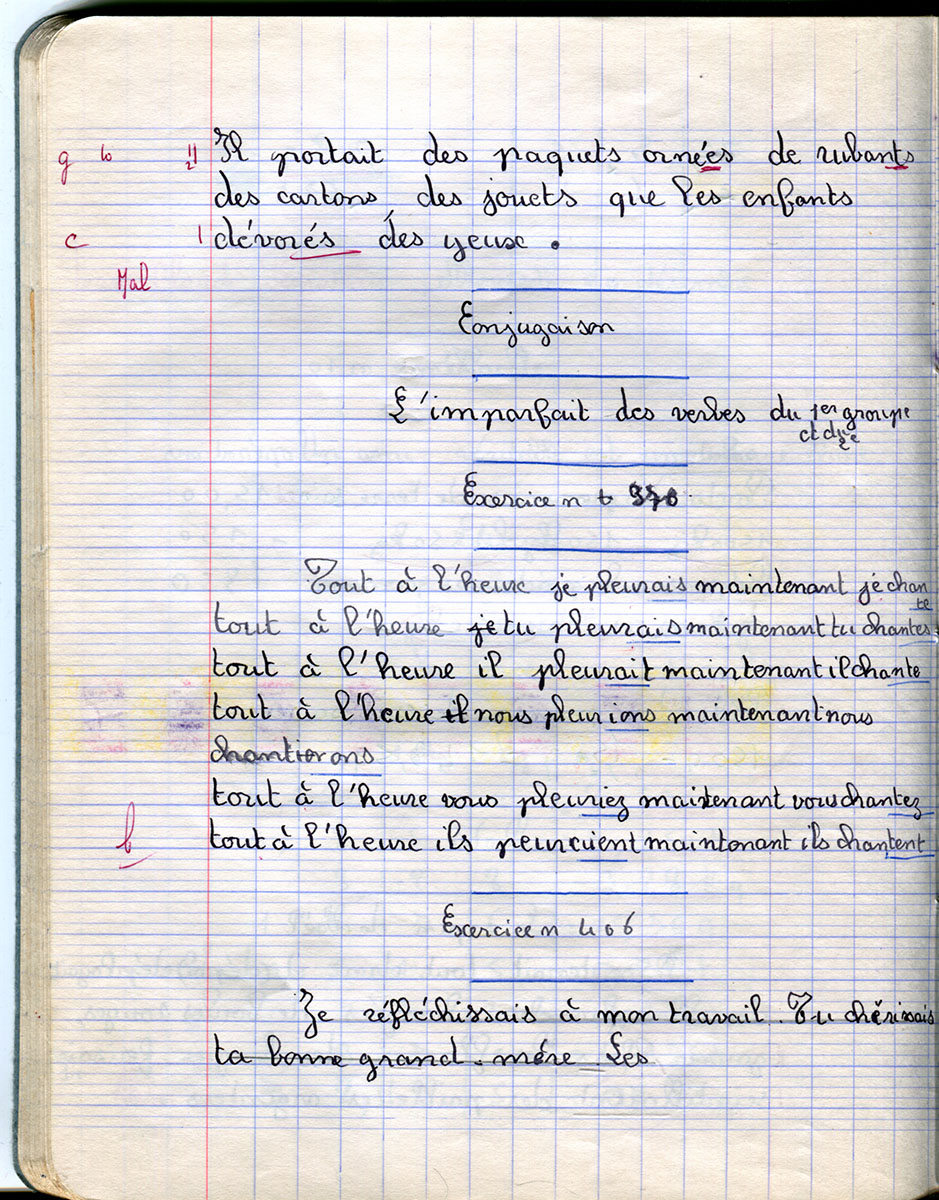 g to 11 2 Il portait des paquets ornées de rubants
des cartons, des jouets que les enfants
c 1 dévorés des yeuse.
Mal
Conjugaison
L'imparfait des verbes du 1er groupe
et du 2e
Exercice n
Tout à l'heure je pleurais maintenant je chan
te
tout à l'heure je tu pleurais maintenant tu chantes
tout à l'heure il pleurait maintenant il chante
tout à l'heure il nous pleurions maintenant nous
tout à l'heure vous pleuriez maintenant vous chantez
b tout à l'heure ils peuraient maintenant ils chantent
Exercice n 406
Je réfléchissais à mon travail. Tu chérissais
ta bonne grand-mére Les